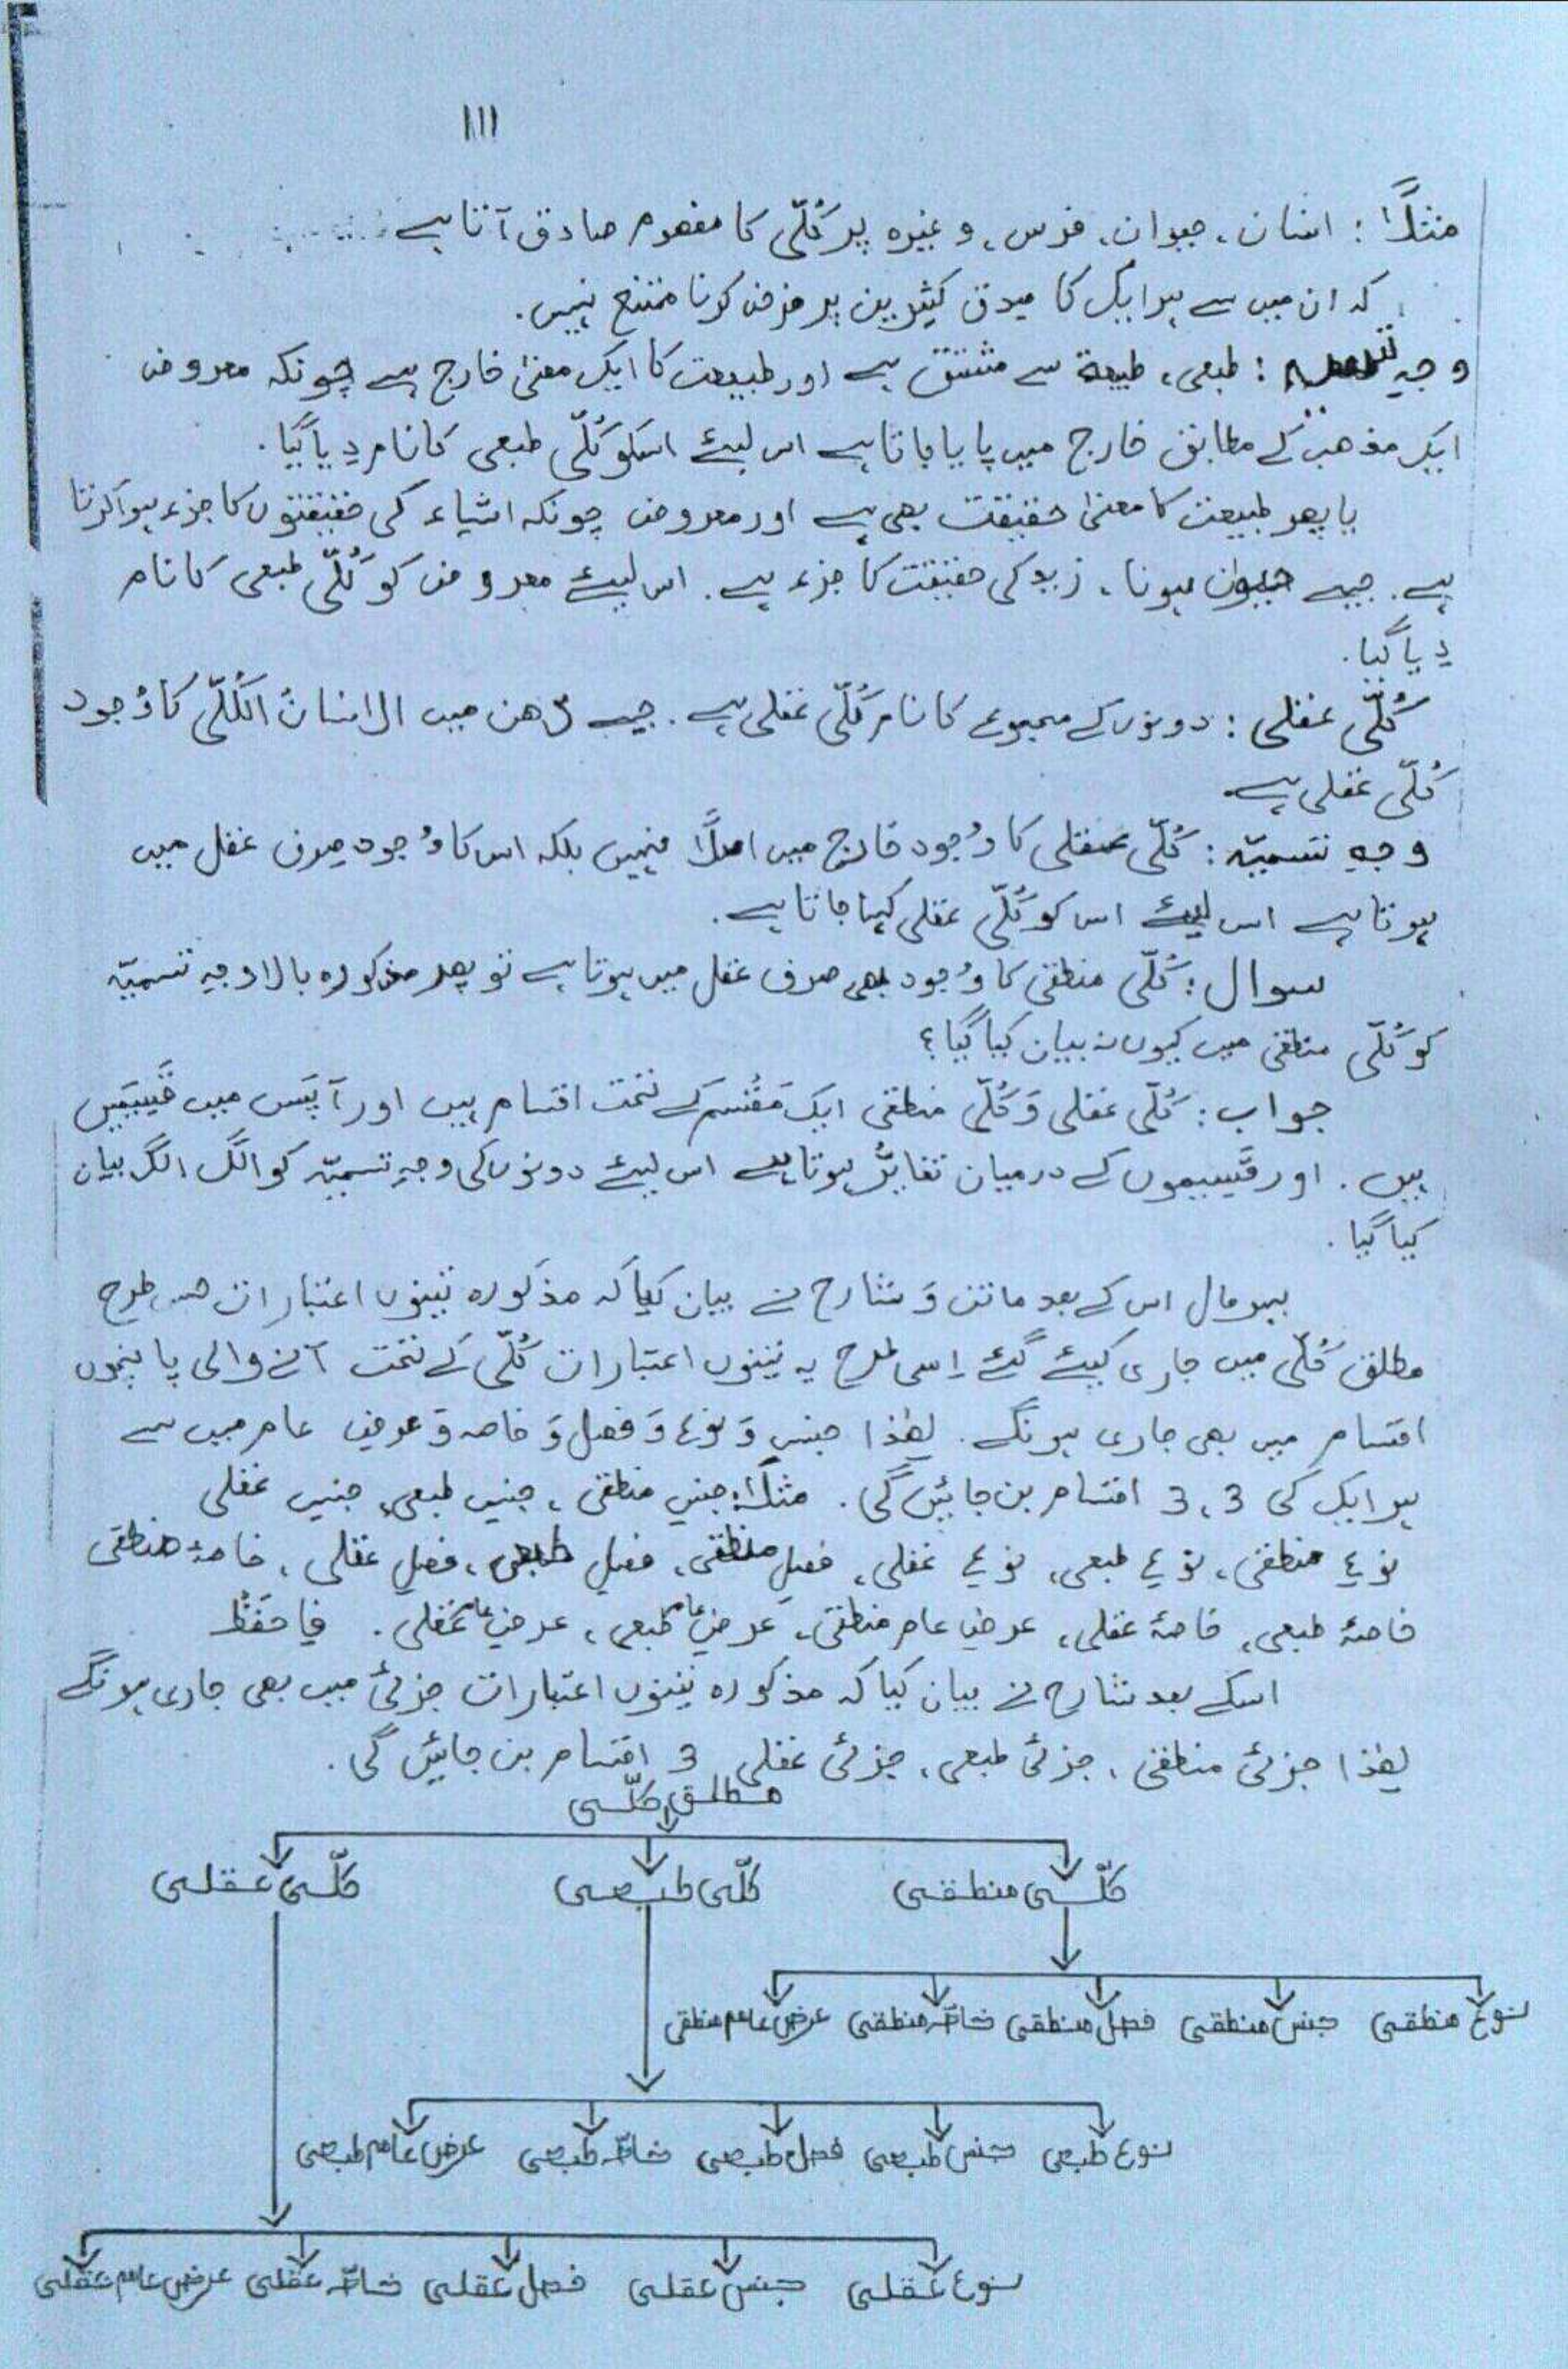 ۱۱۱
مثلاً : انسان، حیوان، فرس، وغیرہ پر کُلّی کا مفھوم صادق آتا ہے
کہ ان میں سے ہر ایک کا صِدق کثیرین پر فرض کرنا ممتنع نہیں.
وجہِ : طبعی، طبیعۃ سے مشتق ہے اور طبیعت کا ایک معنیٰ خارج ہے چونکہ معروض
ایک مذھب کے مطابق خارج میں پایا جاتا ہے اس لیئے اسکو کُلّی طبعی کا نام دِیا گیا.
یا پھر طبیعت کا معنیٰ حقیقت بھی ہے اور معروض چونکہ اشیاء کی حقیقتوں کا جزء ہوا کرتا
ہے. جیسے حیوان ہونا، زید کی حقیقت کا جزء ہے. اس لیئے معروض کو کُلّی طبعی کا نام
دِیا گیا.
کُلّی عقلی : دونوں کے مجموعے کا نام کُلّی عقلی ہے. جیسے ذِھن میں الانسانُ الکُلّی کا وُجود
کُلّی عقلی ہے
وجہِ تسمیّہ : کُلّی عقلی کا وُجود خارج میں اصلاً نہیں بلکہ اس کا وُجود صِرف عقل میں
ہوتا ہے اس لیئے اس کو کُلّی عقلی کہا جاتا ہے.
سوال : کُلّی منطقی کا وُجود بھی صرف عقل میں ہوتا ہے تو پھر مذکورہ بالا وجہِ تسمیّہ
کو کُلّی منطقی میں کیوں نہ بیان کیا گیا؟
جواب : کُلّی عقلی وَ کُلّی منطقی ایک مَقْسَم کے تحت اقسام ہیں اور آپَس میں قَسِیمَیں
ہیں. اور قَسِیموں کے درمیان تغایُر ہوتا ہے اس لیئے دونوں کی وجہِ تسمیّہ کو الگ الگ بیان
کیا گیا.
بہر حال اس کے بعد ماتن وَ شارح نے بیان کیا کہ مذکورہ تینوں اعتبارات جس طرح
مطلق کُلّی میں جاری کیئے گئے اِسی طرح یہ تینوں اعتبارات کُلّی کے تحت آنے والی پانچوں
اقسام میں بھی جاری ہونگے. لھٰذا جنس وَ نوع وَ فصل وَ خاصہ وَ عرضِ عام میں سے
ہر ایک کی 3، 3 اقسام بن جائیں گی. مثلاً: جنسِ منطقی، جنسِ طبعی، جنسِ عقلی
نوعِ منطقی، نوعِ طبعی، نوعِ عقلی، فصلِ منطقی، فصلِ طبعی، فصلِ عقلی، خاصۂ منطقی
خاصۂ طبعی، خاصۂ عقلی، عرضِ عام منطقی، عرضِ عام طبعی، عرضِ عام عقلی. فاحفَظْ
اسکے بعد شارح نے بیان کیا کہ مذکورہ تینوں اعتبارات جزئی میں بھی جاری ہونگے
لھٰذا جزئی منطقی، جزئی طبعی، جزئی عقلی 3 اقسام بن جائیں گی.
مطلق کلّی
کلّی منطقی کلّی طبعی کلّی عقلی
نوع منطقی جنس منطقی فصل منطقی خاصّہ منطقی عرض عام منطقی
نوع طبعی جنس طبعی فصل طبعی خاصّہ طبعی عرض عام طبعی
نوع عقلی جنس عقلی فصل عقلی خاصّہ عقلی عرض عام عقلی